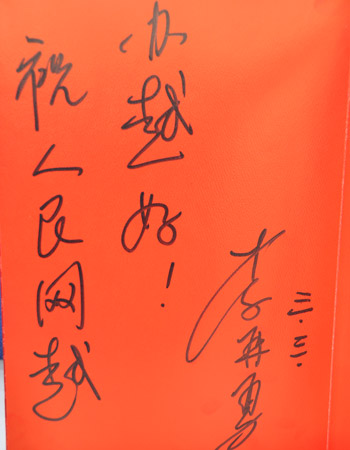 祝人民网越
办越好！
李再勇
三.三.